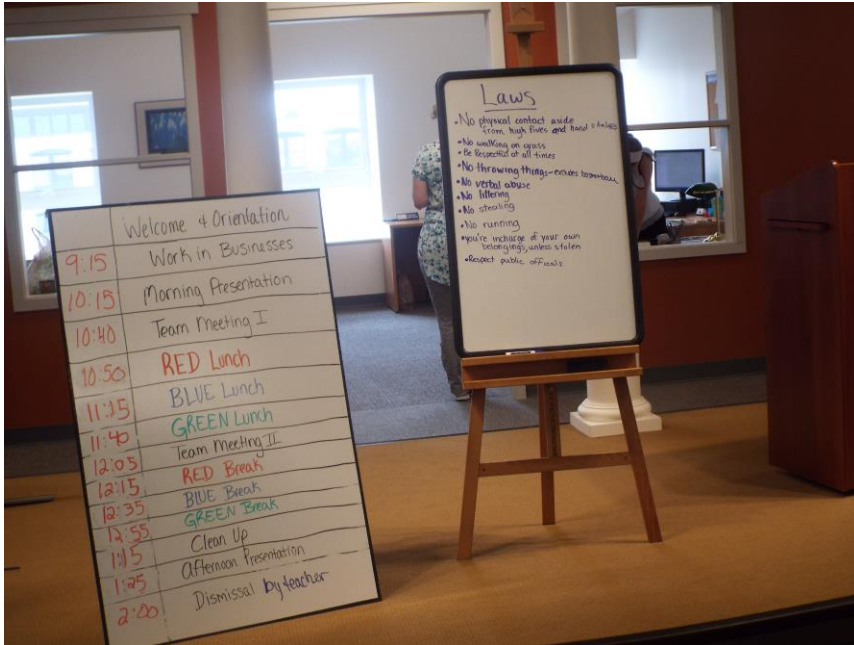 Welcome & Orientation
9:15 Work in Businesses
10:15 Morning Presentation
10:40 Team Meeting I
10:50 RED Lunch
11:15 BLUE Lunch
11:40 GREEN Lunch
12:05 Team Meeting II
12:15 RED Break
12:35 BLUE Break
12:55 GREEN Break
1:15 Clean Up
1:25 Afternoon Presentation
2:00 Dismissal by teacher
Laws
• No physical contact aside
from high fives and hand shakes
• No walking on grass
• Be Respectful at all times
• No throwing things - excludes
• No verbal abuse
• No littering
• No stealing
• No running
• you're incharge of your own
belongings, unless stolen
• Respect public officials